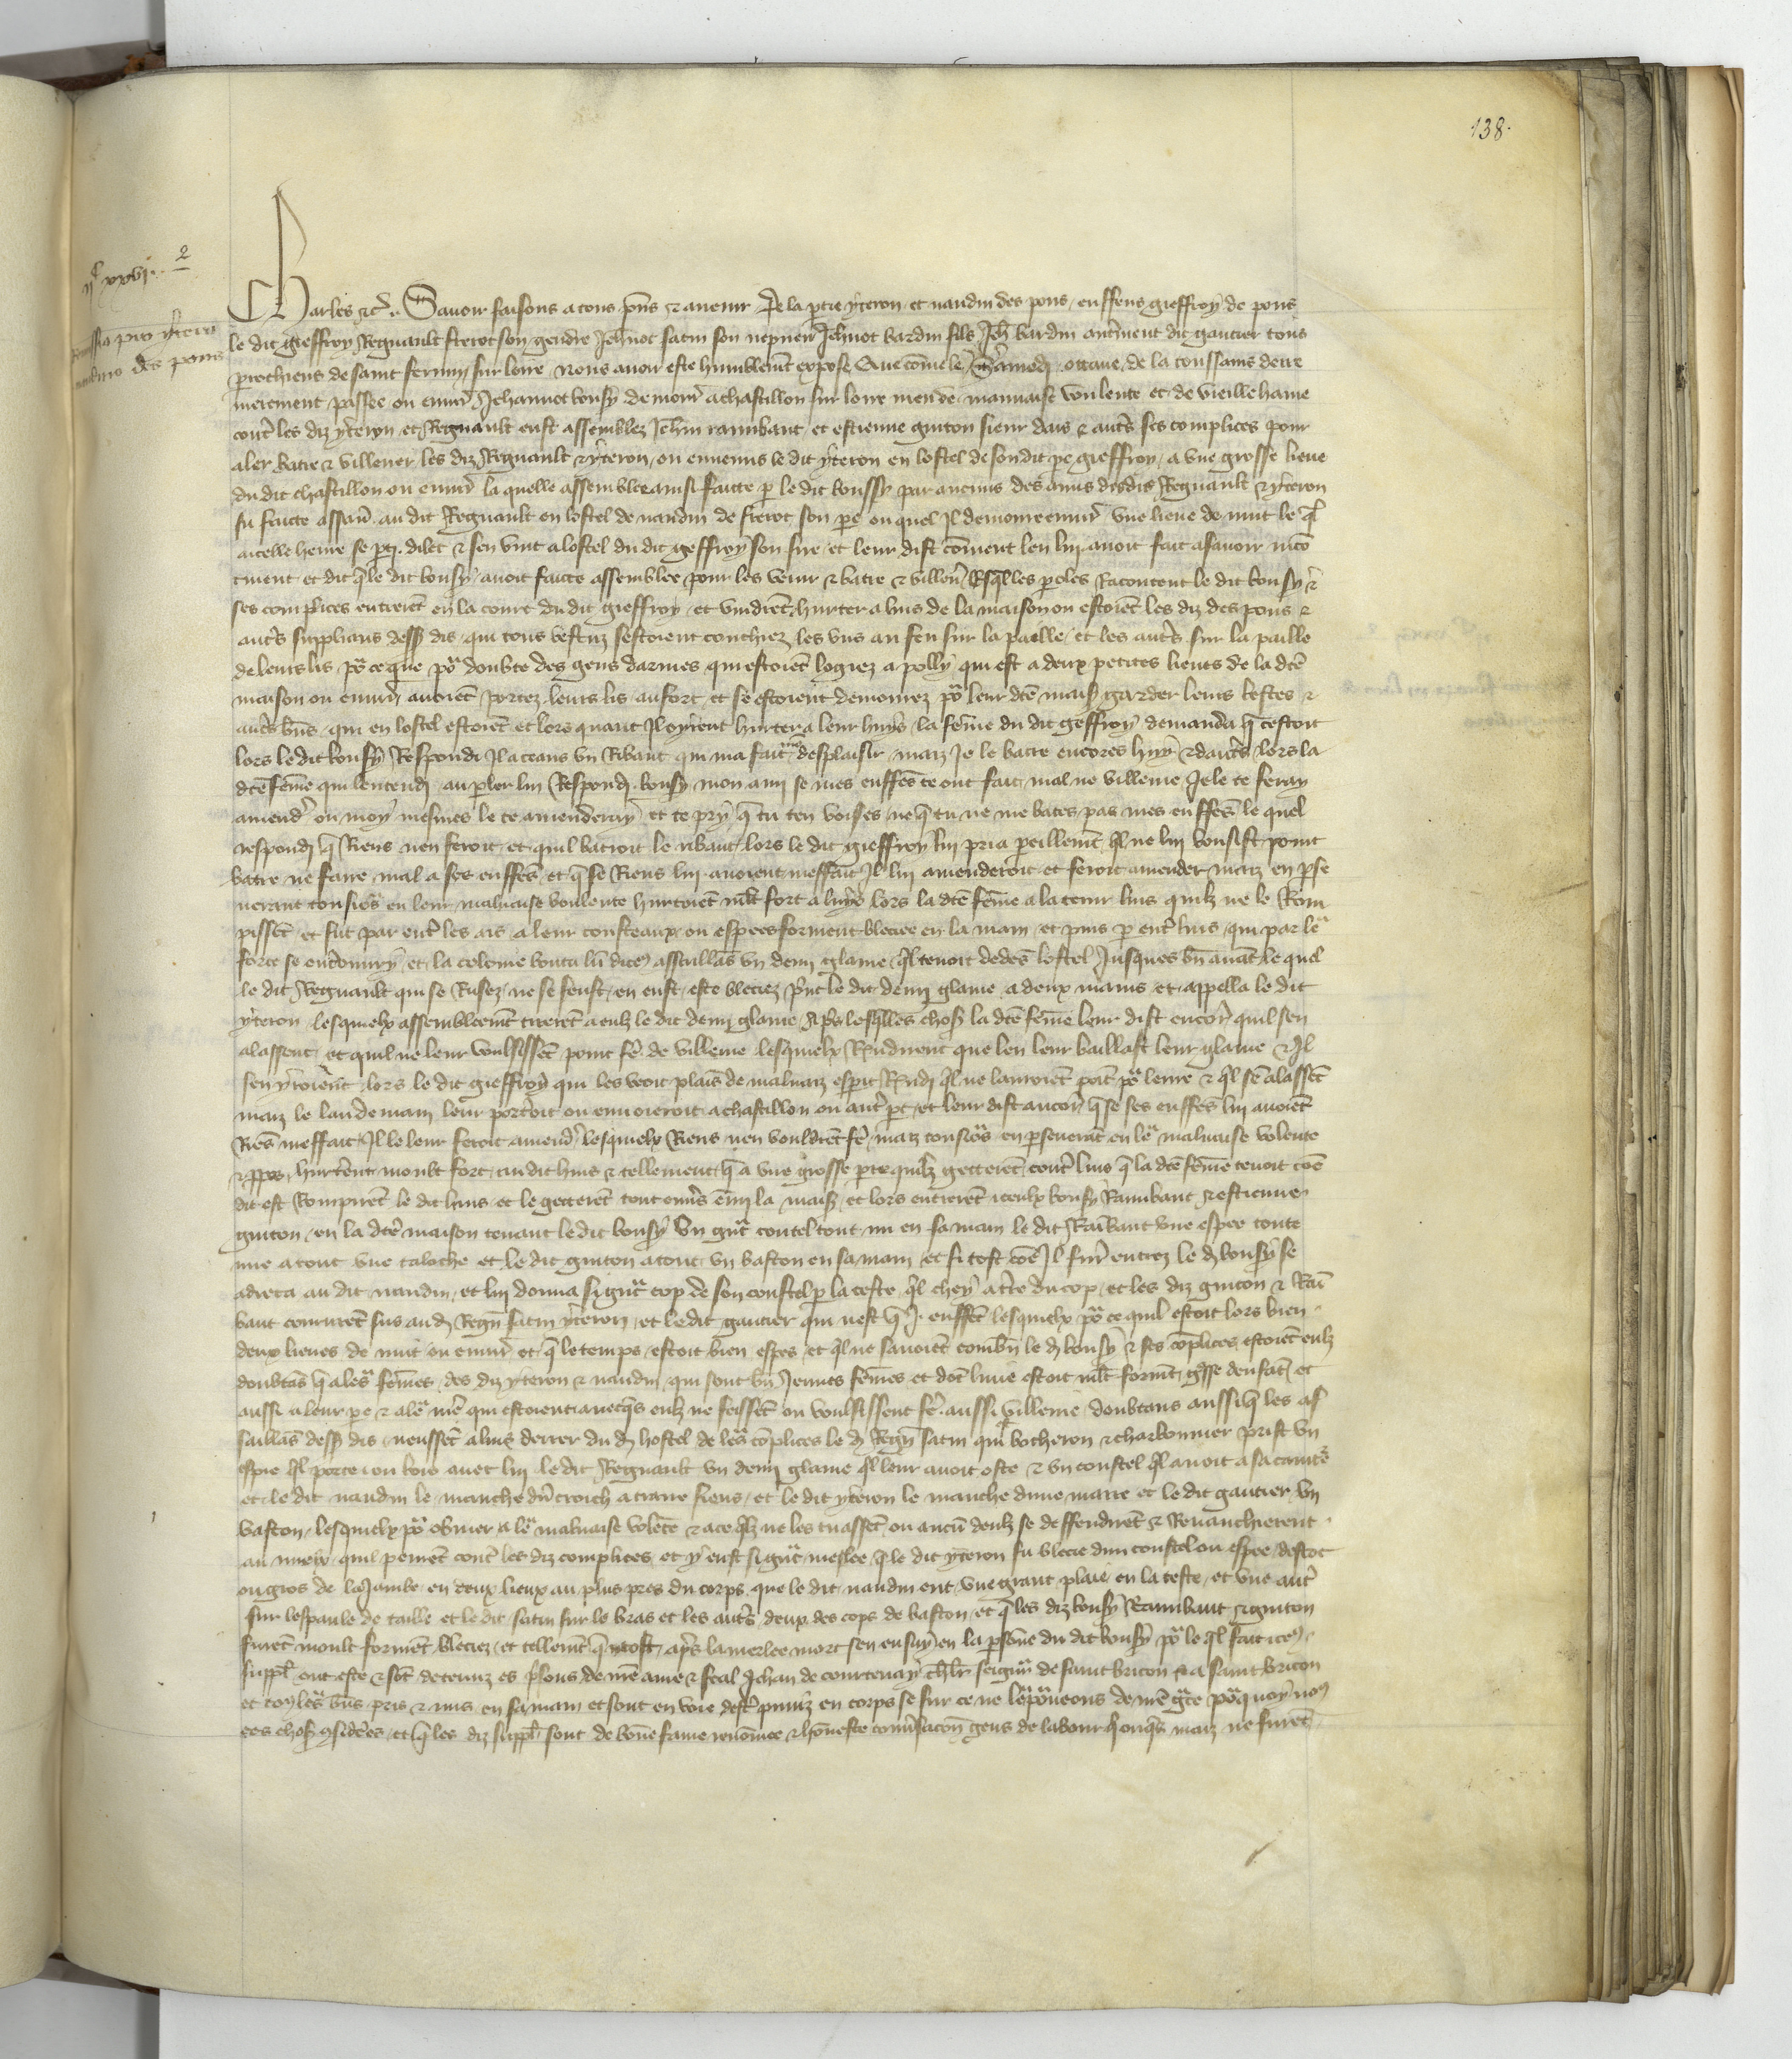 138.
ijc xxvj. 2
Remissio pro yterõ
nandino des pons
Charles etc. Savoir faisons a tous pñs et avenir De la ptie yteron et naudin des pons enffens gieffroy de pons
le dit gieffroy Regnault fterot son gendre Jehnot satin son nepueu Jehnot bardin filz Jeh bardin autrement dit gautier tous
prochiens de saint fermy sur loire nous avoir este humblemt expose Que cõme le samedi ottave de la toussains derre
nierement passee ou envirõ Jehannot boussy demour a chastillon sur loire meu de mauvaise voulente et de vieille hame
contr les diz yteron et Regnault eust assemblez Jehin rambaut et estienne guiton sieur dais et autrs ses complices pour
aler batre et villener les diz Regnault et yteron ou envenus le dit yteron en lostel de son dit pe gieffroy a une grosse lieue
du dit chastillon ou enuirõ la quelle assemblee ainsi faitte p le dit boussy par aucuns des amis desdis Regnault et yteron
fu faitte assavr au dit Regnault en lostel de naudin de fterot son pe ou quel Il demoure enuirõ une lieue de nuit le ql
a icelle heure se pti dilec et sen vint a lostel du dit gieffroy son sire et leur dist cõment len lui avoit fait asavoir
et dit q le dit bousy avoit faitte assemblee pour les venir et batre et villenr Esqlles poles Racontent le dit bousy et
ses complices entrerēt en la court du dit gieffroy et vindrēt hurter a luis de la maison ou estoiēt les diz des pons et
autrs supplians dess dis qui tous vestuz sestoient couchiez les uns au feu sur la paille et les autrs sur la paille
de leurs lis por ce que por doubte des gens darmes qui estoiēt logiez a polly qui est a deux petites lieues de la dte
maison ou enuirõ avoiēt portez leurs lis au fort et se estoient demourez por leur dte maiss garder leurs bestes et
autrs bñs qui en lostel estoiēt et lors quant Il oyrent hurter a leur huys la feme du dit gieffroy demanda q cestoit
lors le dit bousy Respondi Il a ceans un Ribaut qui ma fait desplaisir maiz Je le batre encores huy et dautrs lors la
dte feme qui lentendi au pler lui Respondi bousy mon ami se mes enffes te ont fait mal ne villenie Je le te feray
amendr ou moy mesmes le te amenderay et te pry q tu ten voises ne q tu ne me bates pas mes enffes le quel
respondi q Riens nen feroit et quil batroit le ribaut lors le dit gieffroy lui pria peillemt ql ne lui vousist point
batre ne faire mal a ses enffes et q se Riens lui avoient meffait Il lui amenderoit et feroit amender maiz en pse
verant tousiors en leur malvaise voulente hurtoiēt mlt fort a luys lors la dte feme ala tenir luis quilz ne le Rom
pissēt et fut par entr les ais a leur cousteaux ou espees forment bleciee en la main et puis p entr luis qui par leur
force se entrouvry et la celome bouta lũ diceu assaillãs un demi glaive ql tenoit dedes lostel Jusques bñ avãt le quel
le dit Regnault qui se Rusez ne se feust en eust este bleciez print le dit demi glaive a deux mains et appella le dit
yteron lesquelx assembleemt tirerēt a eulz le dit demi glaive Aps lesqlles choss la dte feme leur dist encor quil sen
alassent et quil ne leur voulsissēt point fe de villenie lesquelx Rndirent que len leur baillast leur glaive et Il
sen yroient lors le dit gieffroy qui les veoit plais de malvaiz esperit Rndi ql ne lauroiēt poĩt por leure et ql sē alassēt
maiz le landemain leur porteroit ou envoieroit a chastillon ou autr pt et leur dist ancor q se ses enffes lui avoiēt
Riēs meffait Il le leur feroit amendr lesquelx Riens nen vouldrēt fe maiz tousiors en perseverãt en leur malvaise volente
et ppos hurterent moult fort au dit huis et tellement q a une grosse pte quilz getterēt contr luis q la dte feme tenoit coe
dit est Rompirēt le dit huis et le getterēt tout envers emi la maiss et lors entrerēt iceulx bousy Rambaut et estienne
guiton en la dte maison tenant le dit bousy Un grãt coutel tout nu en sa main le dit Rambaut une espee toute
nue atout une taloche et le dit guiton atout un baston en sa main et si tost coe Il furēt entrez le d bousy se
adreca au dit naudin et lui donna si grãt cop de son coustel p la teste ql chey a tre du cop et les diz guiton et Ram
baut coururēt sus au d Regñ satin yteron et le dit gautier qui nest q I enffēt lesquelx por ce quil estoit lors bien
deux lieues de nuit ou envirõ et q le temps estoit bien espes et ql ne savoiēt combñ le d bousy et ses cõplices estoiēt eulz
doubtãs q a leurs femes des diz yteron et naudin qui sont bñ Jeunes femes et dōt lune estoit mlt formt gsse denfãt et
aussi a leur pe et a leur mē qui estoient avecqs eulz ne feissēt ou voulsissent fe aussi villenie doubtans aussi q les as
saillãs dess dis neussēt a luis derrier du d hostel de leurs cõplices le d Regñ satin qui bocheron et charbonnier prist un
espie ql porte au bois avec lui le dit Regnault un demi glaive ql leur avoit oste et un coustel ql avoit a sa caintre
et le dit naudin le manche dũ croich a traire fiens et le dit yteron le manche dune marre et le dit gautier un
baston lesquelx por obvier a leur malvaise volete et a ce qlz ne les tuassēt ou aucũ deulz se deffendirēt et Revanchierent
au mielx quil peurēt contr les diz complices et y eust si grãt meslee q le dit yteron fu blecie dun coustel ou espee destoc
ou gros de la Jambe en deux lieux au plus pres du corps que le dit naudin eut une grant plaie en la teste et une autr
sur lespaule de taille et le dit satin sur le bras et les autrs deux des cops de baston et q les diz bousy Rambaut et guiton
furēt moult forment bleciez et tellemt q ntost apres la merlee mort sen ensuy en la persone du dit bousy por le ql fait iceu
suppl ont este et sōt detenuz es prisons de nre ame et feal Jehan de courtenay chlr seignr de saint bricon et a saint bricon
et touz leurs bñs pris et mis en sa main et sont en voie destr puniz en corps se sur ce ne leur porveons de nre grace porquoy nous
ces choss csiderees et q les diz suppl sont de bone fame renõmee et honneste convsacon gens de labour q onqs maiz ne furēt